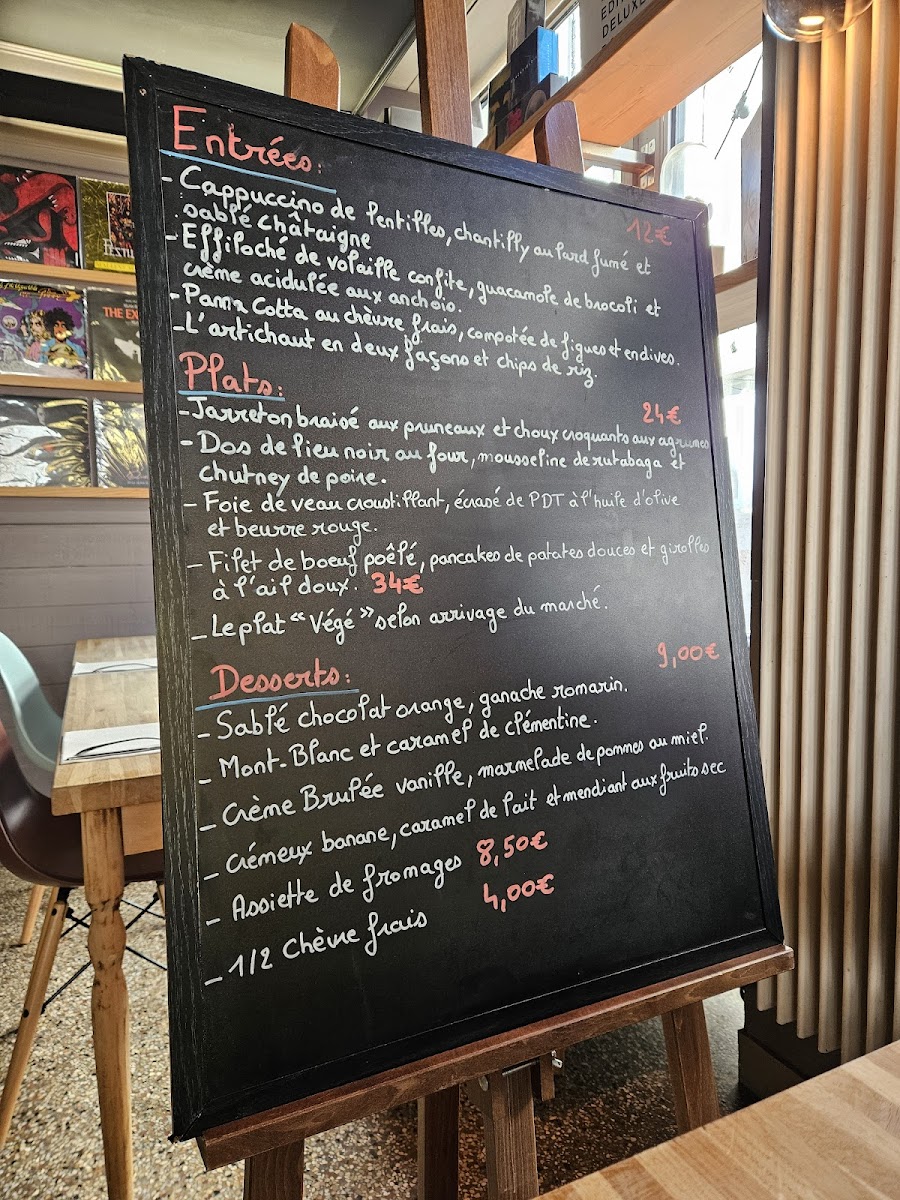 EDIT
DELUXE
Entrées:
12€
- Cappuccino de lentilles, chantilly au lard fumé et
sablé Châtaigne
- Effiloché de volaille confite, guacamole de brocoli et
crème acidulée aux anchois.
- Panna Cotta au chèvre frais, compotée de figues et endives.
- L'artichaut en deux façons et chips de riz.
Plats:
24€
- Jarreton braisé aux pruneaux et choux croquants aux agrumes
- Dos de lieu noir au four, mousseline de rutabaga et
chutney de poire.
- Foie de veau croustillant, écrasé de PDT à l'huile d'olive
et beurre rouge.
- Filet de boeuf poêlé, pancakes de patates douces et girolles
à l'ail doux. 34€
- Le plat "Végé" selon arrivage du marché.
Desserts:
9,00€
- Sablé chocolat orange, ganache romarin.
- Mont-Blanc et caramel de clémentine.
- Crème Brulée vanille, marmelade de pommes au miel.
- Crémeux banane, caramel de lait et mendiant aux fruits sec
- Assiette de fromages 8,50€
- 1/2 Chèvre frais 4,00€
THE EX